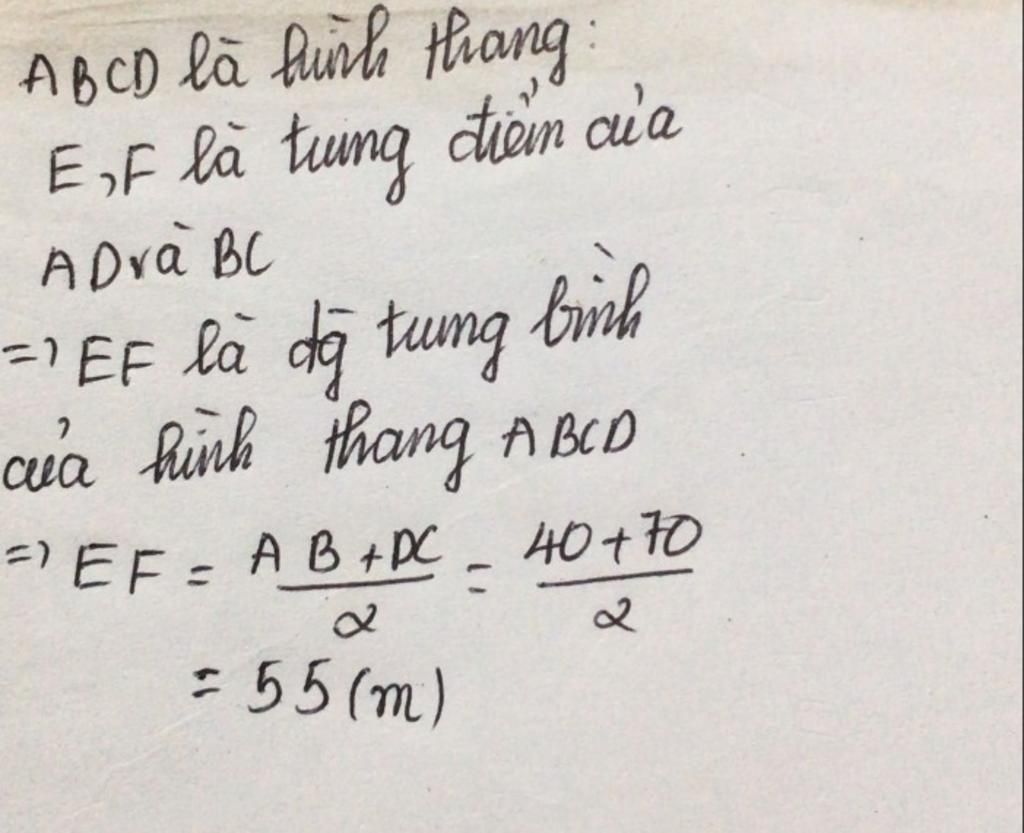 ABCD là hình thang:
E, F là trung điểm của
AD và BC
=> EF là đg trung bình
của hình thang ABCD
=> EF = (AB + DC)/2 = (40 + 70)/2
= 55 (m)